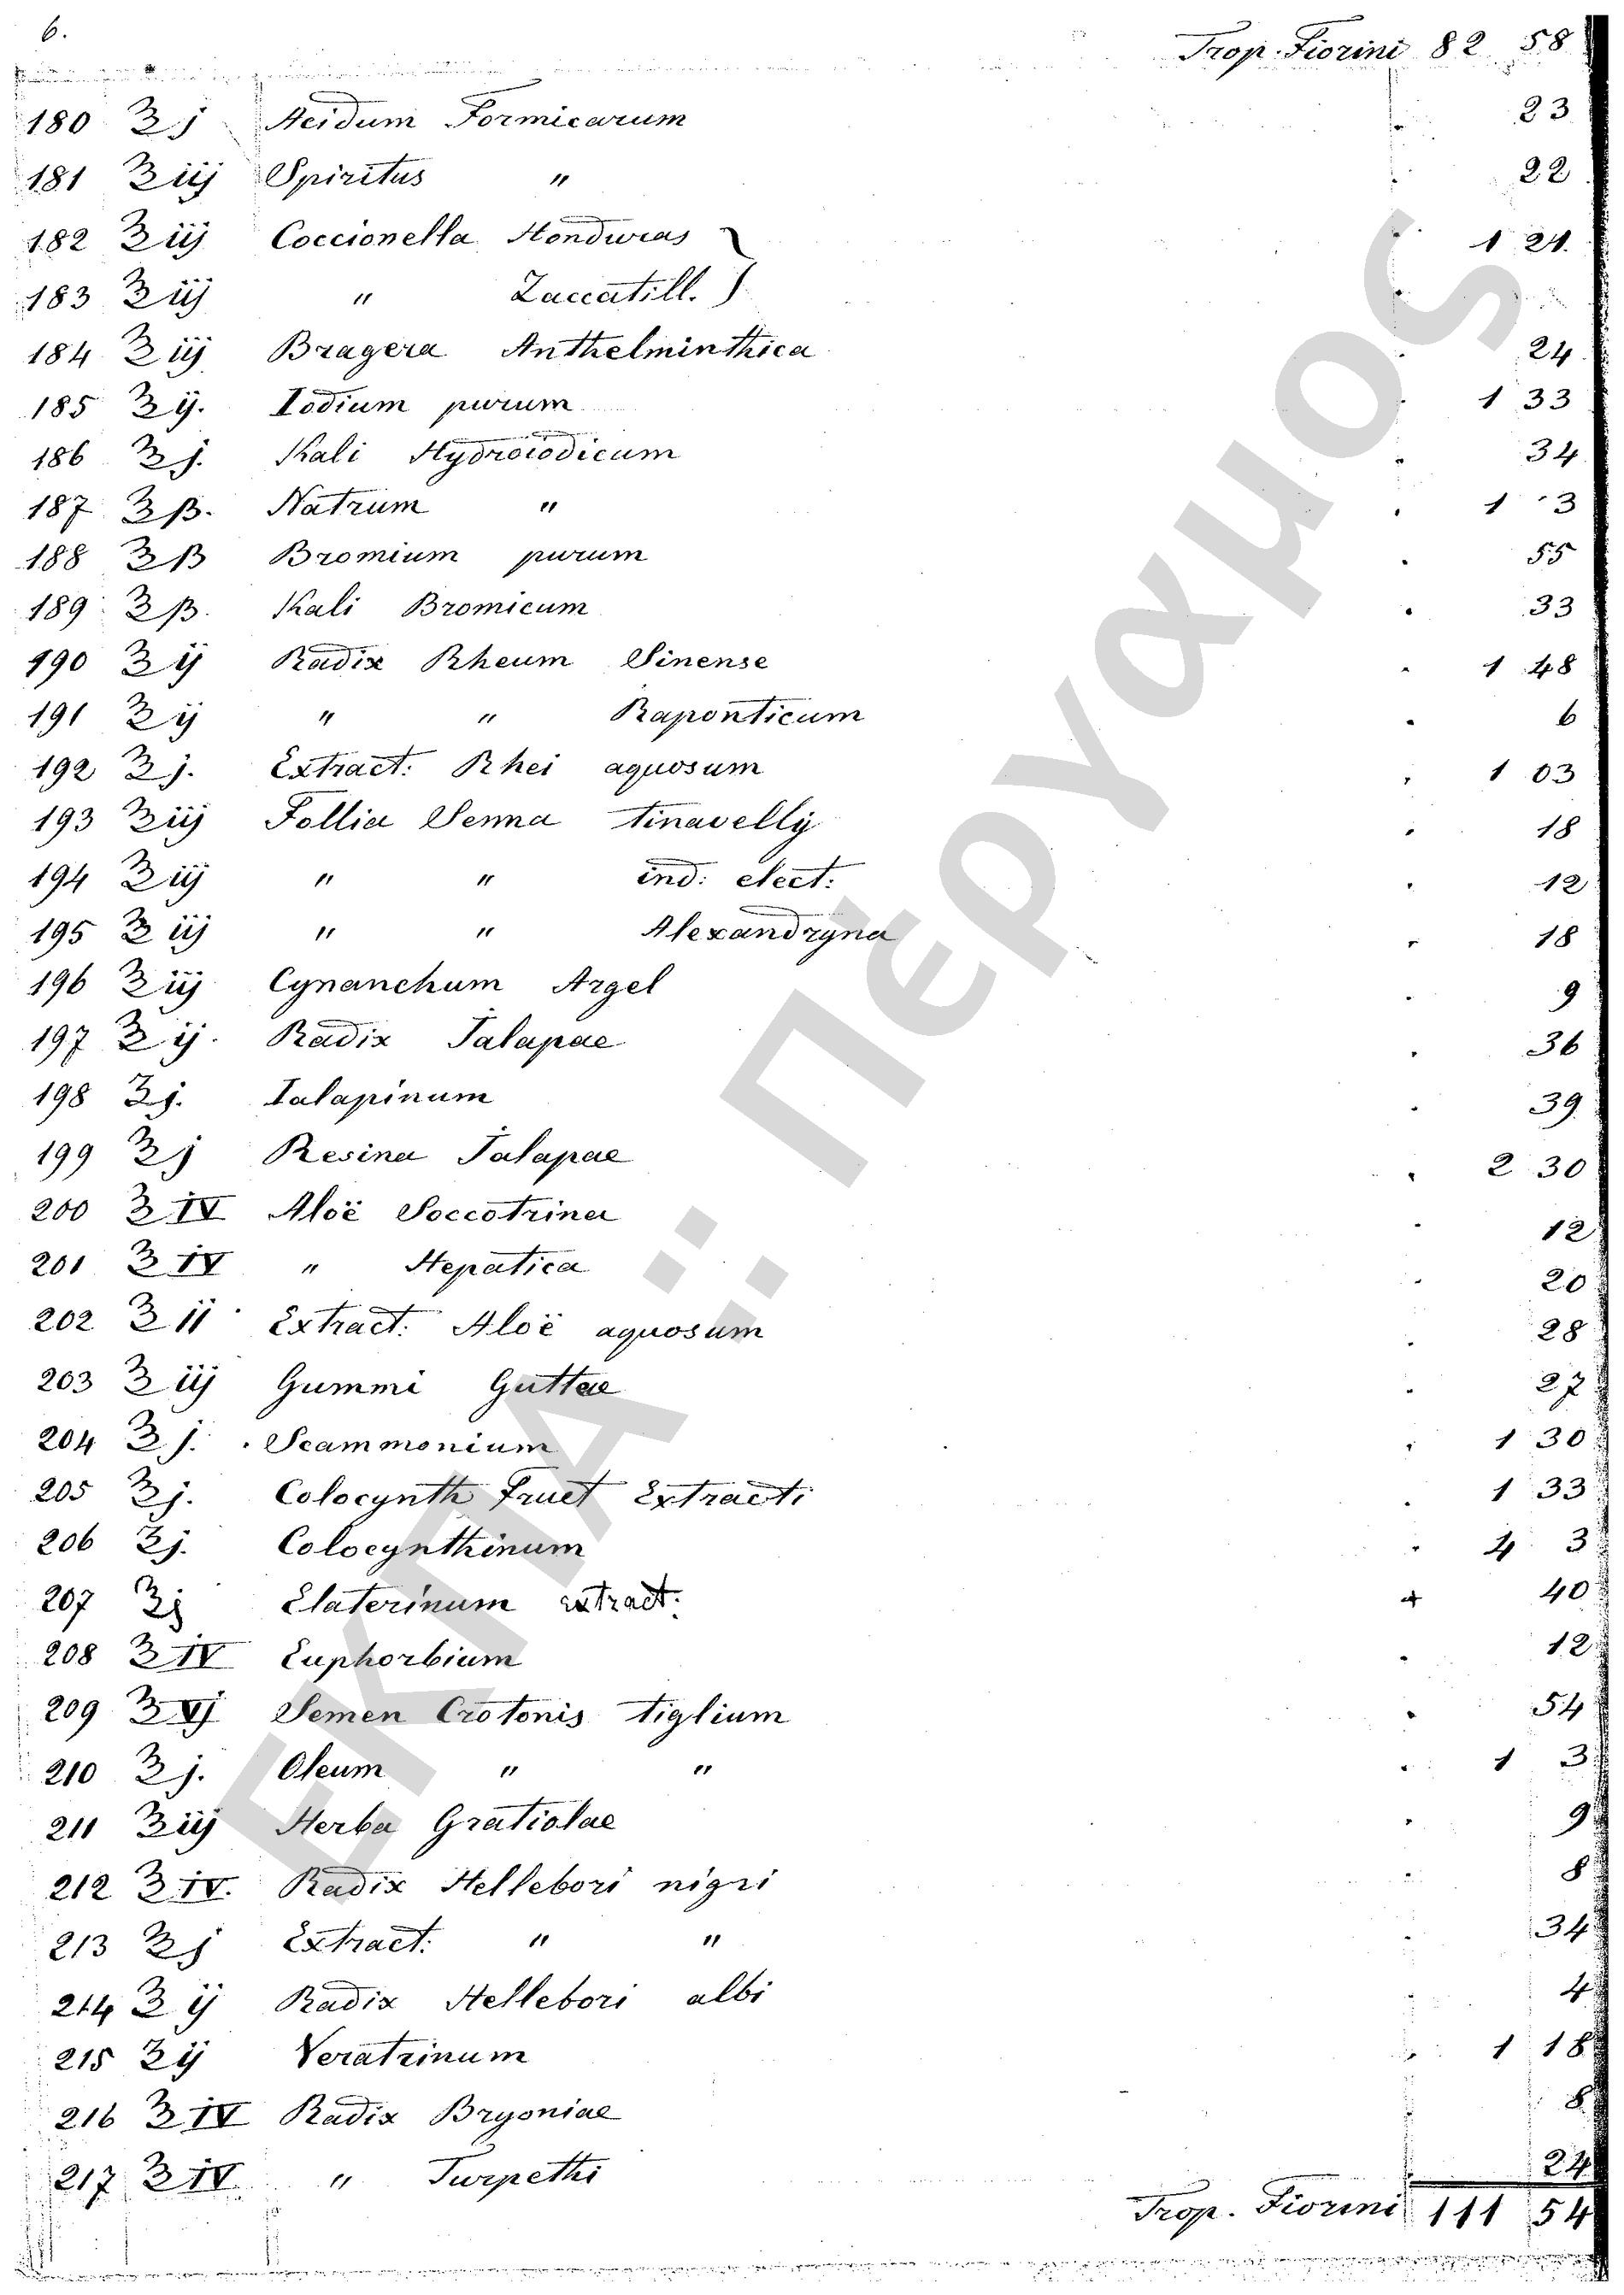 6.
Trop. Fiorini 82 58
180 ʒ j Acidum Formicarum 23
181 ʒ iij Spiritus " 22
182 ʒ iij Coccionella Honduras 1 21.
183 ʒ iij " Zaccatill. }
184 ʒ iij Bragera Anthelminthica 24
185 ʒ ij. Iodium purum 1 33
186 ʒ j. Kali Hydroiodicum 34
187 ʒ β. Natrum " 1 3
188 ʒ β Bromium purum 55
189 ʒ β. Kali Bromicum 33
190 ʒ ij Radix Rheum Sinense 1 48
191 ʒ ij " " Raponticum 6
192 ʒ j. Extract: Rhei aquosum 1 03
193 ʒ iij Follia Senna tinavellÿ 18
194 ʒ iij " " ind: elect: 12
195 ʒ iij " " Alexandryna 18
196 ʒ iij Cynanchum Argel 9
197 ʒ ij. Radix Jalapae 36
198 ʒ j. Ialapinum 39
199 ʒ j Resina Jalapae 2 30
200 ʒ IV Aloë Soccotrina 12
201 ʒ IV " Hepatica 20
202 ʒ II Extract: Aloë aquosum 28
203 ʒ iij Gummi Guttae 27
204 ʒ j. Scammonium 1 30
205 ʒ j. Colocynth Fruct Extracti 1 33
206 ʒ j. Colocynthinum 4 3
207 ʒ j Elaterinum extract: 40
208 ʒ IV Euphorbium 12
209 ʒ VJ Semen Crotonis tiglium 54
210 ʒ j. Oleum " " 1 3
211 ʒ iij Herba Gratiolae 9
212 ʒ IV. Radix Hellebori nigri 8
213 ʒ j Extract: " " 34
214 ʒ ij Radix Hellebori albi 4
215 ʒ ij Veratrinum 1 18
216 ʒ IV Radix Bryoniae 8
217 ʒ IV " Turpethi 24
Trop. Fiorini 111 54
ΕΚΠΑ: Πέργαμος